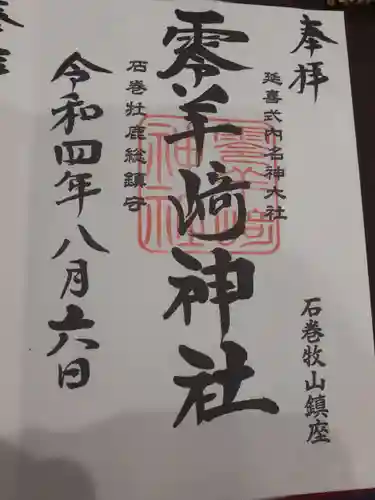 奉拝
延喜式内名神大社
石巻牧山鎮座
零羊﨑神社
石巻牡鹿総鎮守
令和四年八月六日
零羊﨑
神社